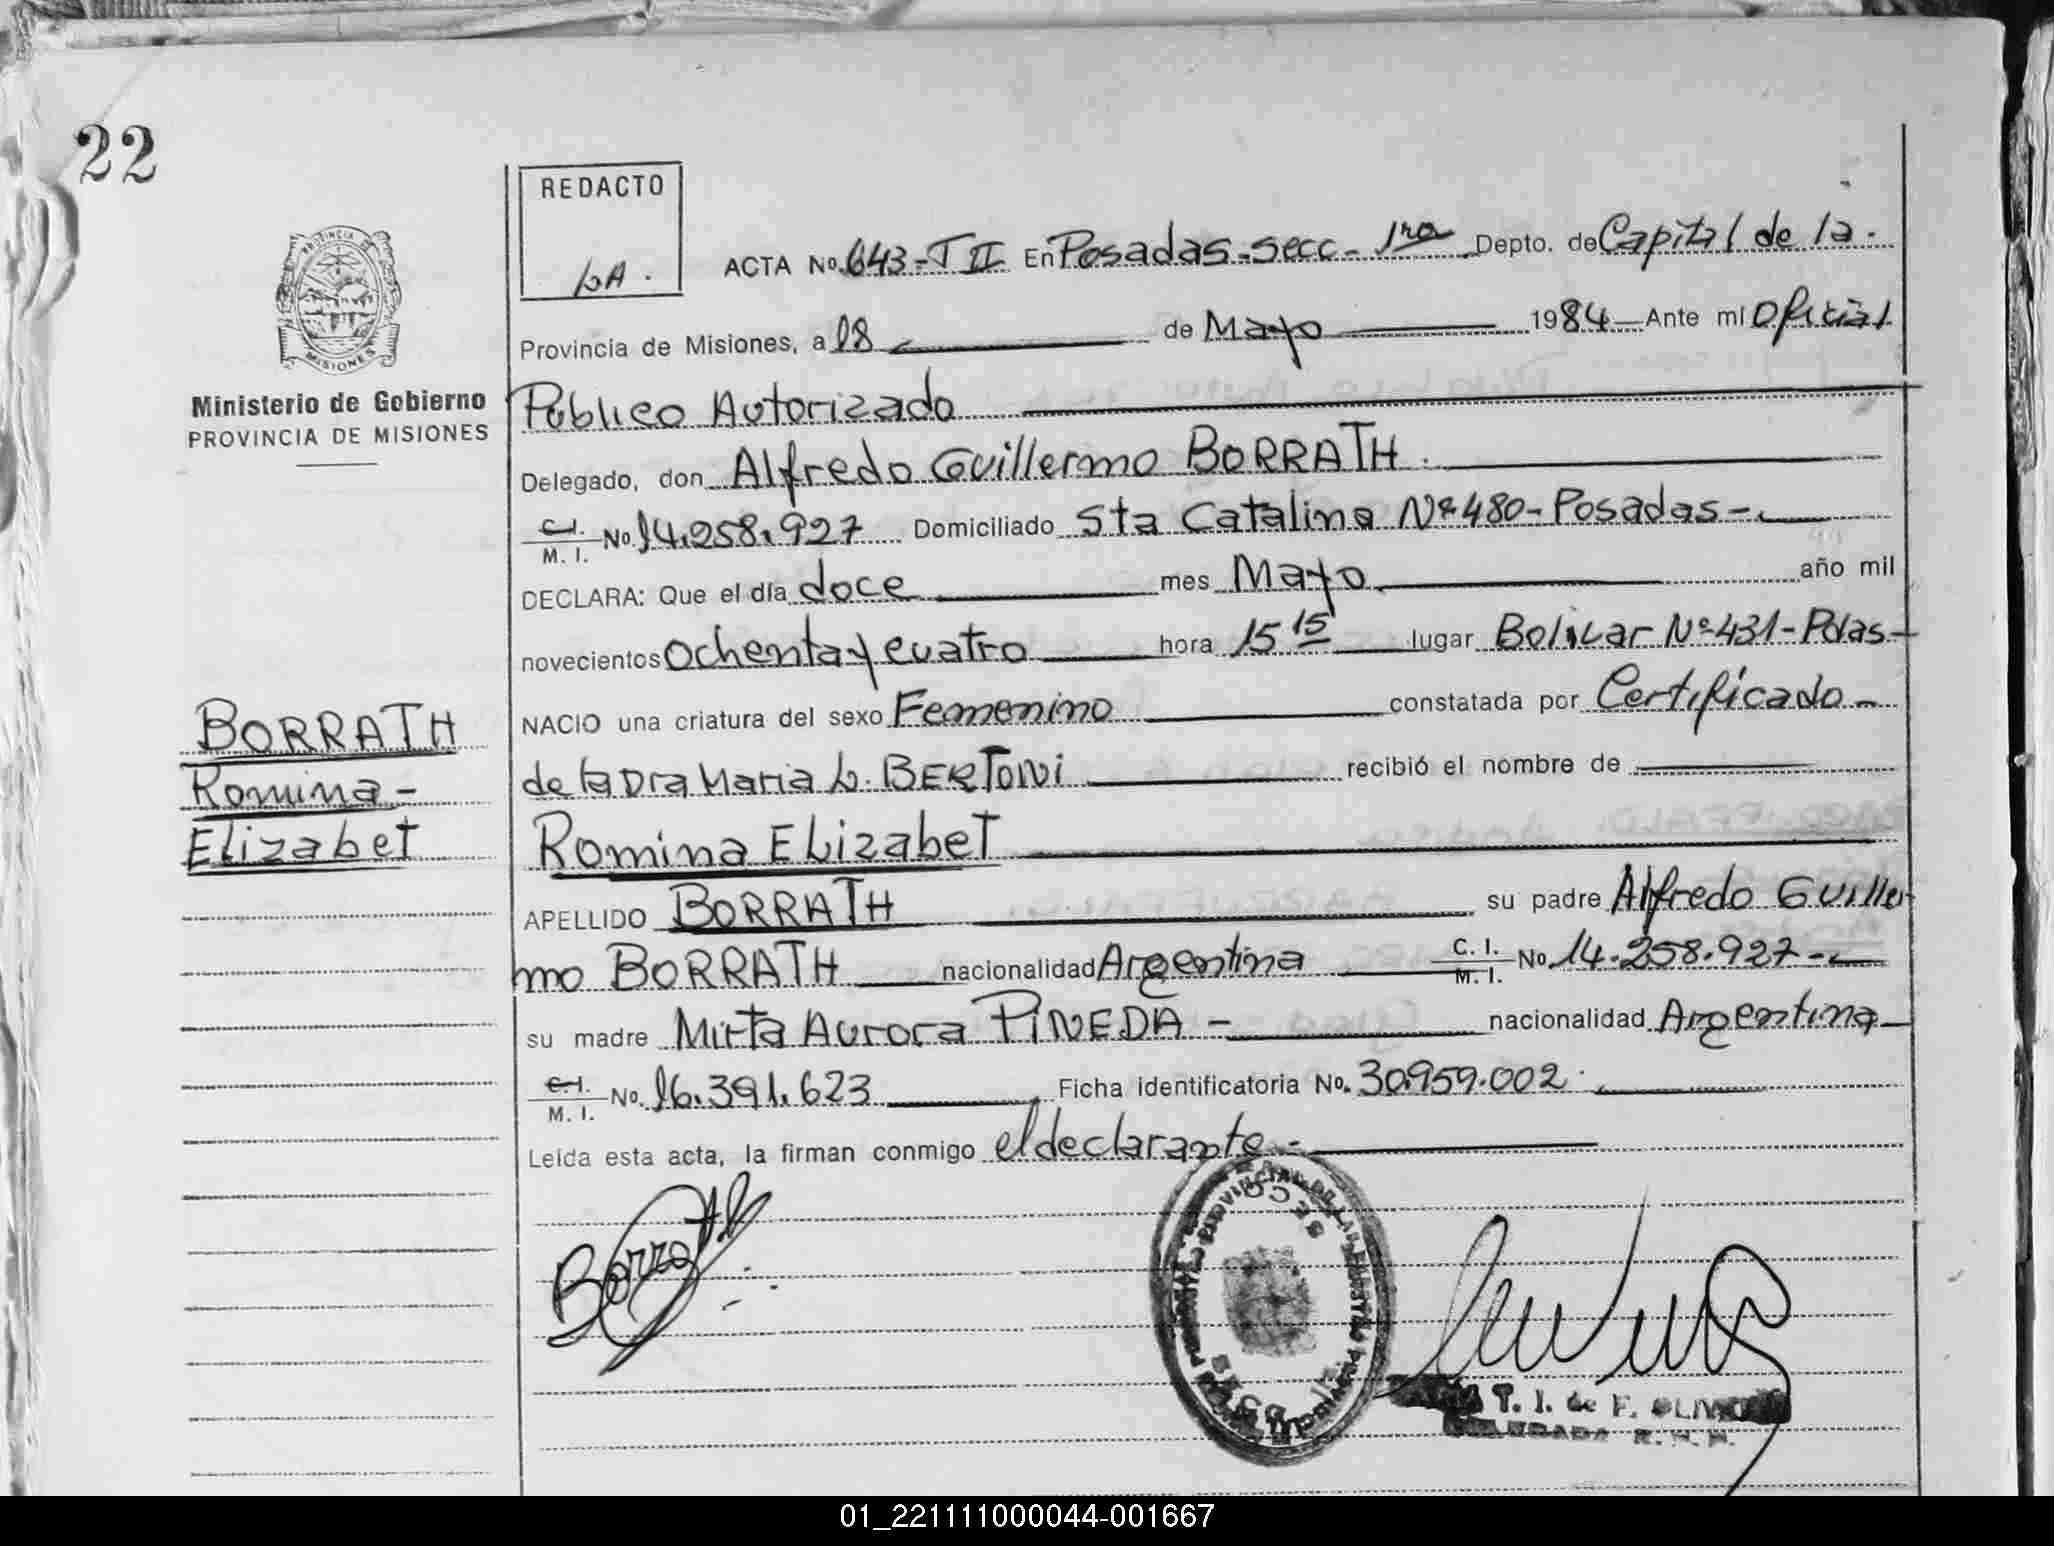 22
REDACTO
LA.
ACTA No. 643-T II En Posadas-Secc-1ra Depto. de Capital de la.
PROVINCIA DE
MISIONES
Provincia de Misiones, a 18 de Mayo 1984 Ante mi Oficial
Ministerio de Gobierno
PROVINCIA DE MISIONES
Público Autorizado
Delegado, don Alfredo Guillermo BORRATH.
C.I. M. I. No. 14.258.927 Domiciliado Sta Catalina Nº 480-Posadas-
DECLARA: Que el día doce mes Mayo año mil
novecientos Ochenta y cuatro hora 15 15 lugar Bolivar Nº 431-Pdas-
NACIO una criatura del sexo Femenino constatada por Certificado-
de la Dra Maria L. BERTONI recibió el nombre de
BORRATH
Romina-
Elizabet
Romina Elizabet
APELLIDO BORRATH su padre Alfredo Guiller
mo BORRATH nacionalidad Argentina C. I. M. I. No. 14.258.927-
su madre Mirta Aurora PINEDA - nacionalidad Argentina
C.I. M. I. No. 16.391.623 Ficha identificatoria No. 30.959.002.
Leída esta acta, la firman conmigo el declarante-
Borrath
T. I. de F.
01_221111000044-001667